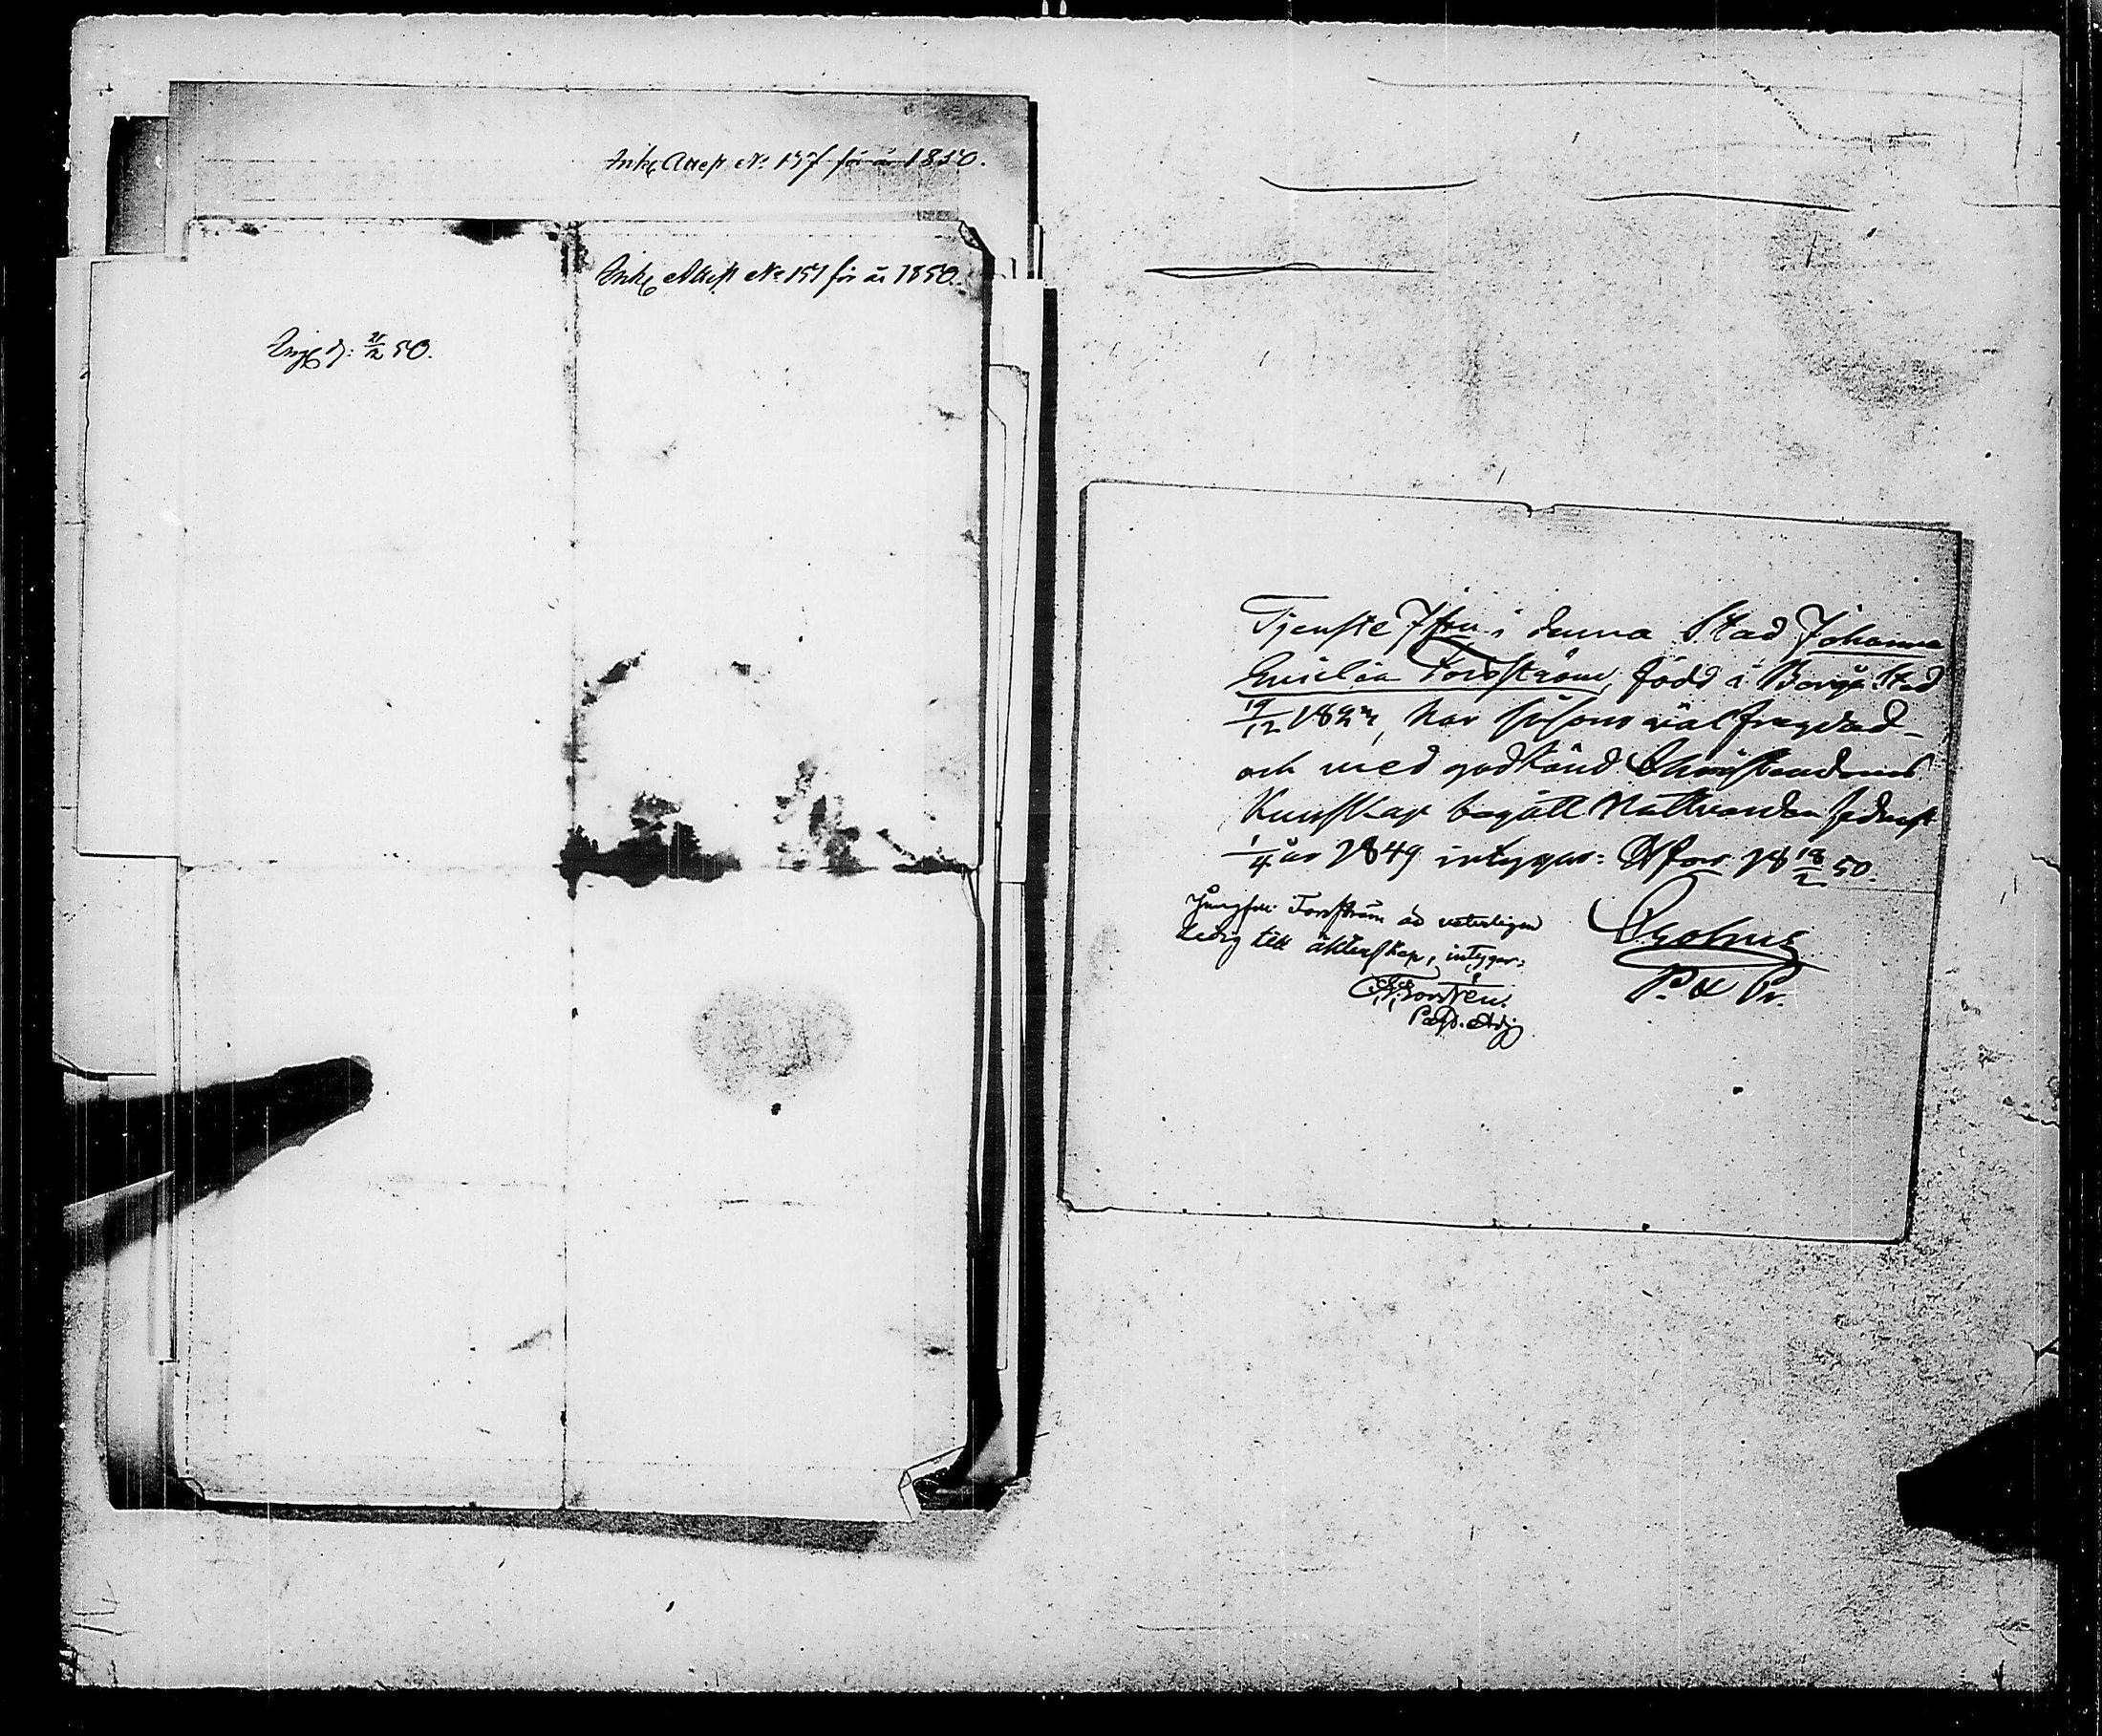 Ink. Attest No 157 för år 1850.
Ink. Attest No 151 för år 1850.
Ing. d: 21/2 50.
Tjenste Jfru i denna Stad Johanna
Emilia Forsström, född i Borgå Stad
19/12 1822, har såsom väl frägdad
och med godkänd Christendoms
Kunskap begått Nattvarden sednast
1/4 år 1849 intygar: Hfors 18 18/2 50.
Jungfru Forsström är veterligen
ledig till äktenskap, intygar:
P. & Pr.
Past. Adj